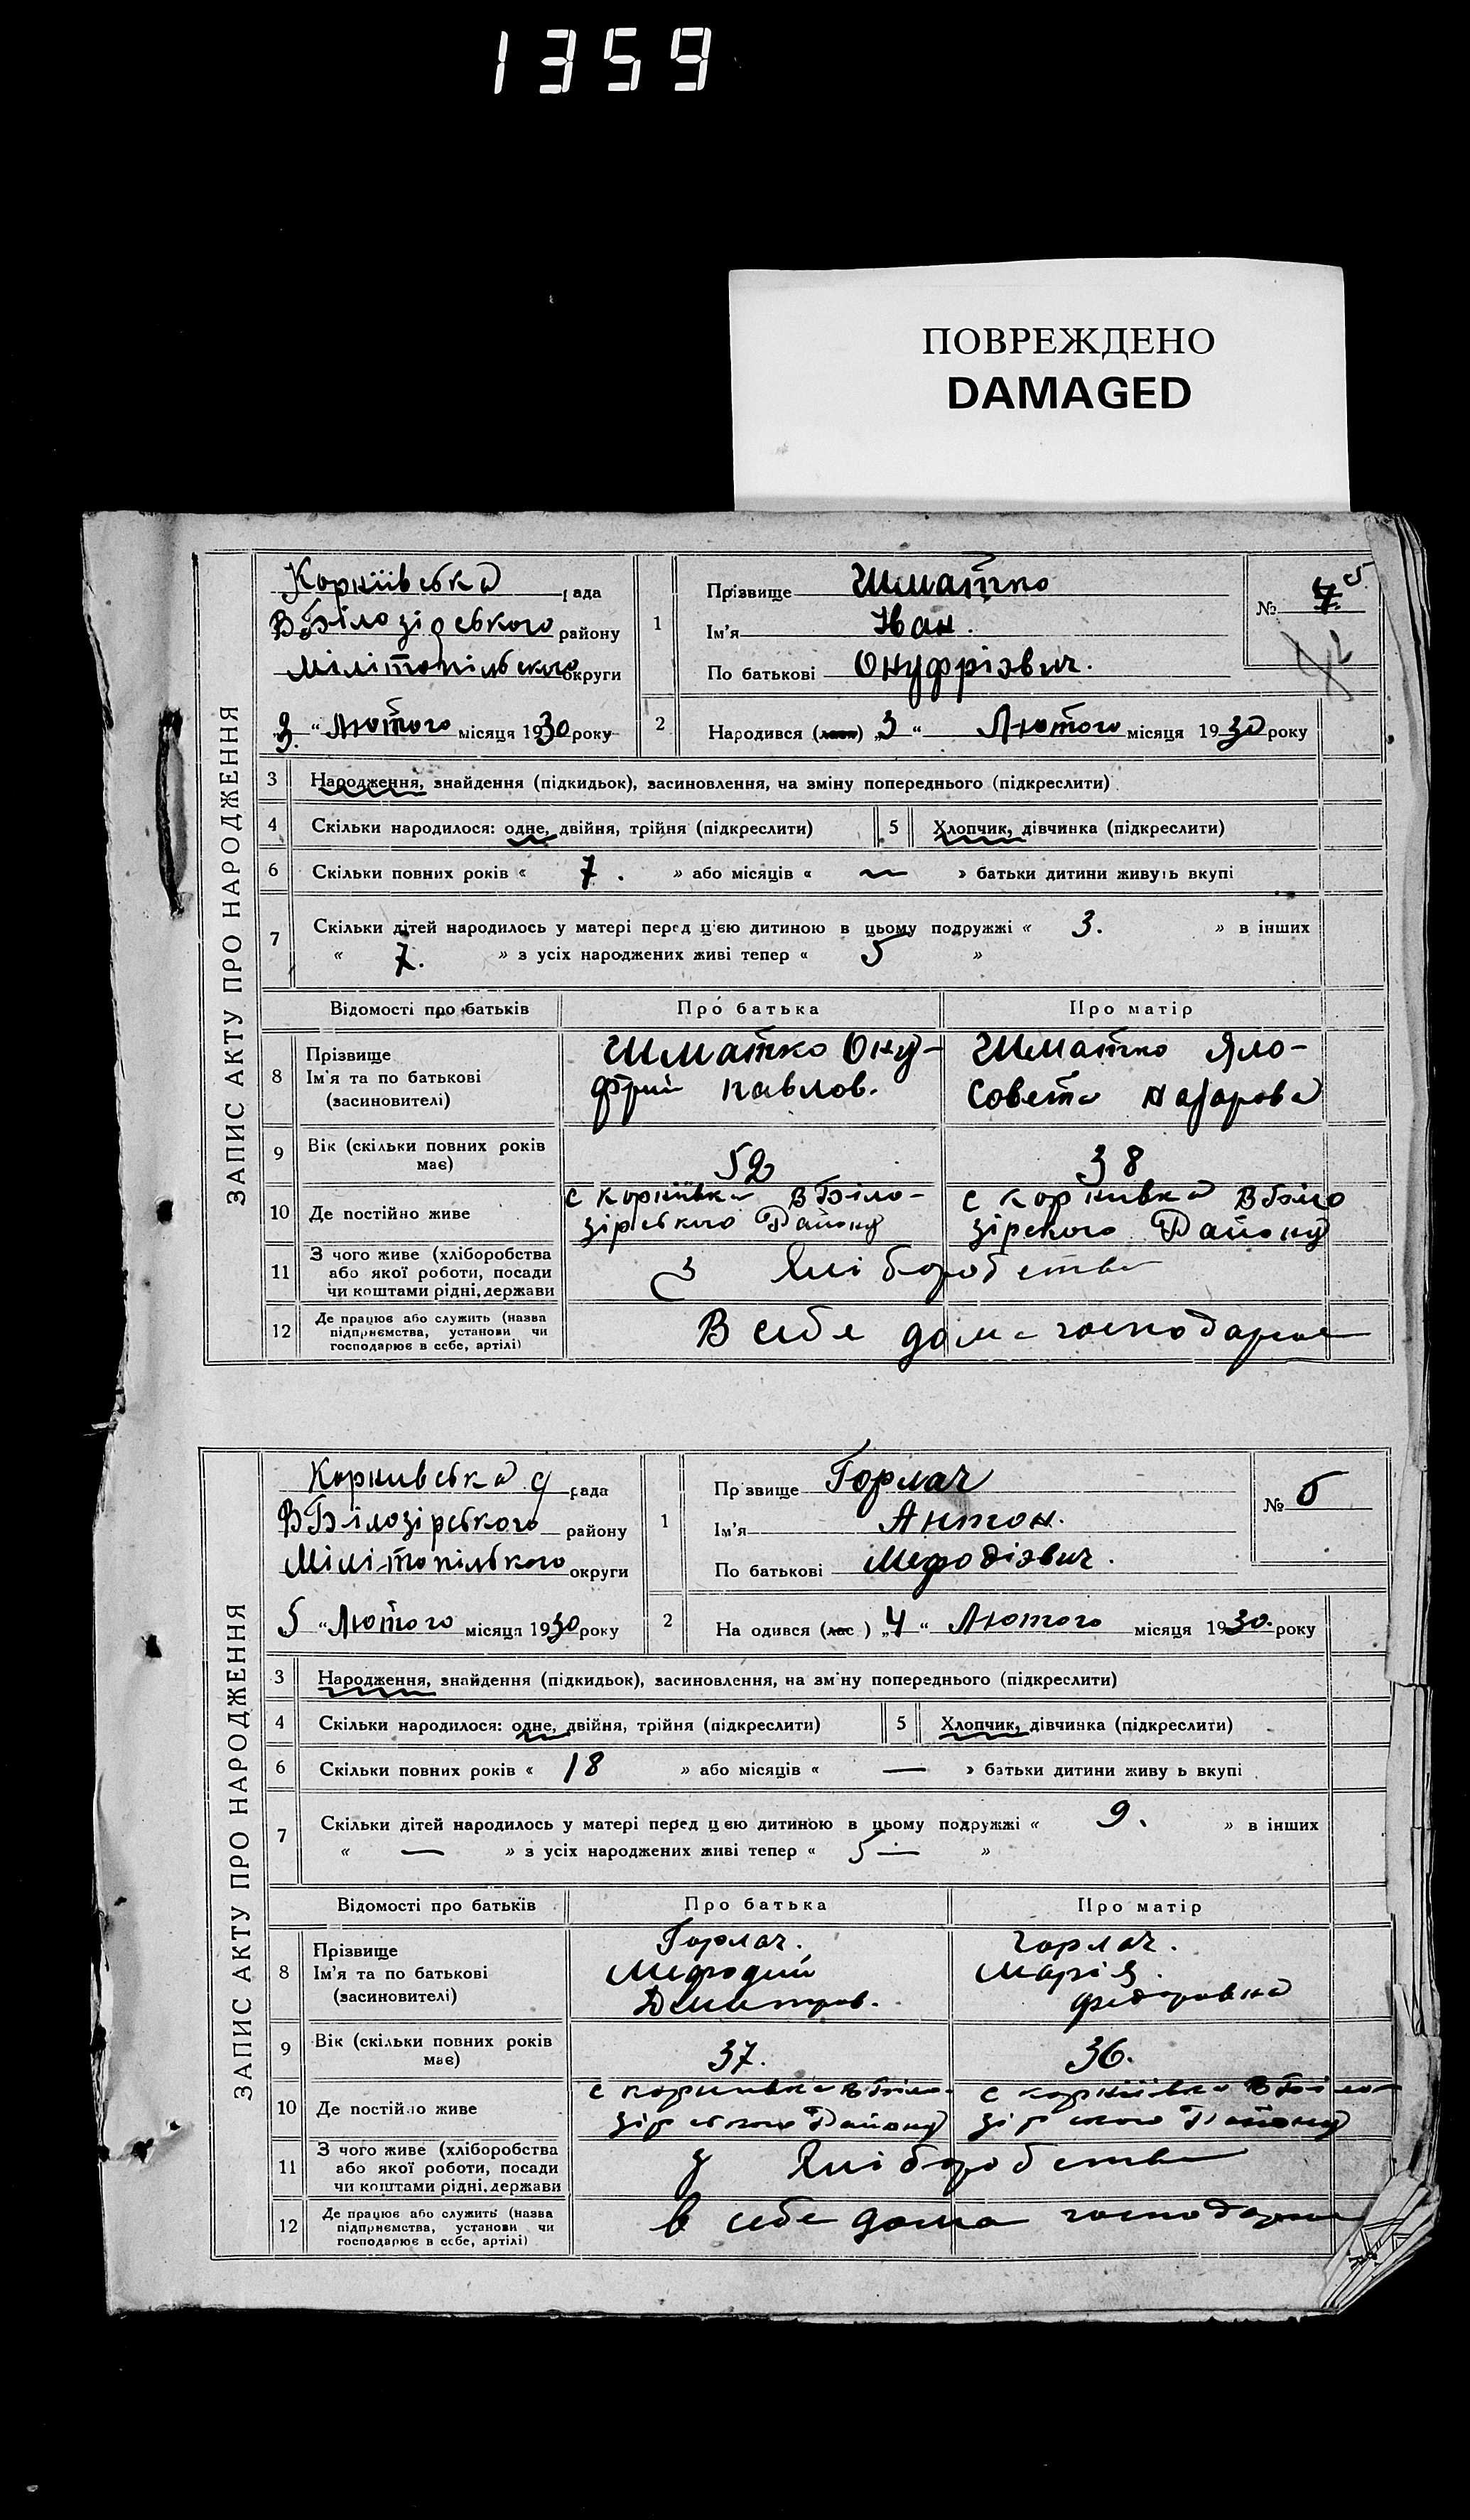 1359
ПОВРЕЖДЕНО
DAMAGED
ЗАПИС АКТУ ПРО НАРОДЖЕННЯ
Корніївська рада
В Білозірського району
Мілітопільського округи
3 " Лютого місяця 1930 року
1 Прізвище Шматко
Ім'я Іван.
По батькові Онуфрієвич.
№ 5
2 Народився (лася) „3 “ Лютого місяця 1930 року
3 Народження, знайдення (підкидьок), засиновлення, на зміну попереднього (підкреслити)
4 Скільки народилося: одне, двійня, трійня (підкреслити) 5 Хлопчик, дівчинка (підкреслити)
6 Скільки повних років « 7. » або місяців « — » батьки дитини живуть вкупі
7 Скільки дітей народилось у матері перед цією дитиною в цьому подружжі « 3. » в інших
« 7. » з усіх народжених живі тепер « 5 »
Відомості про батьків Про батька Про матір
8 Прізвище
Ім'я та по батькові
(засиновителі)
Шматко Ону-
фрий павлов.
Шматко Яло-
Совета Назарова
9 Вік (скільки повних років
має)
52
38
10 Де постійно живе
с корніївка В Біло-
зірського Району
с корнивка В Біло
зірского Району
11 З чого живе (хліборобства
або якої роботи, посади
чи коштами рідні, держави
З Хліборобства
12 Де працює або служить (назва
підприємства, установи чи
господарює в себе, артілі)
В себе дома господарює
ЗАПИС АКТУ ПРО НАРОДЖЕННЯ
Корнивська рада
В Білозірського району
Мілітопілького округи
5 " Лютого місяця 1930 року
1 Прізвище Горлач
Ім'я Антон.
По батькові Мефодієвич.
№ 6
2 На одився (лас ) „4 “ Лютого місяця 1930. року
3 Народження, знайдення (підкидьок), засиновлення, на зм ну попереднього (підкреслити)
4 Скільки народилося: одне, двійня, трійня (підкреслити) 5 Хлопчик, дівчинка (підкреслити)
6 Скільки повних років « 18 » або місяців « — » батьки дитини живу ь вкупі
7 Скільки дітей народилось у матері перед ц єю дитиною в цьому подружжі « 9. » в інших
« — » з усіх народжених живі тепер « 5 — »
Відомості про батьків Про батька Про матір
8 Прізвище
Ім'я та по батькові
(засиновителі)
Горлач.
Мефодий
Дмитров.
Горлач.
Марія
Федоровна
9 Вік (скільки повних років
має)
37.
36.
10 Де постійно живе
с корнивка В Біло-
зірського Району
с корніївка В Біло-
зірського Району
11 З чого живе (хліборобства
або якої роботи, посади
чи коштами рідні, держави
З Хліборобства
12 Де працює або служить (назва
підприємства, установи чи
господарює в себе, артілі)
в себе дома господарює